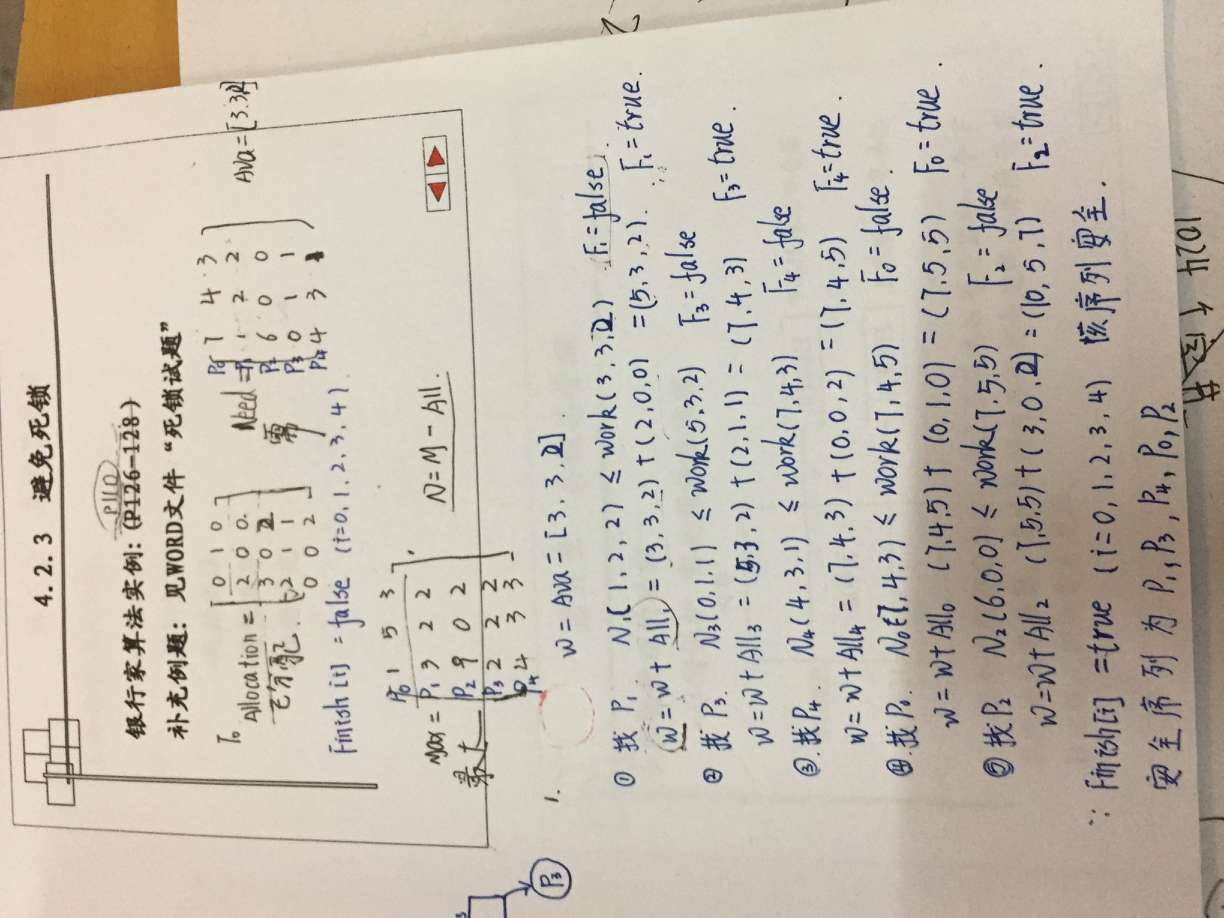 4.2.3 避免死锁
P110
银行家算法实例:(P126-128)
补充例题: 见WORD文件“死锁试题”
T₀
Allocation =
已分配
0 1 0
2 0 0
3 0 2
2 1 1
0 0 2
Need =
需
P₀ 7 4 3
P₁ 1 2 2
P₂ 6 0 0
P₃ 0 1 1
P₄ 4 3 1
Ava = [3.3.2]
Finish[i] = false (i=0,1,2,3,4).
Max =
最大
P₀ 1 5 3
P₁ 3 2 2
P₂ 9 0 2
P₃ 2 2 2
P₄ 4 3 3
N = M - All.
P₃
1.
W = Ava = [3.3.2].
① 找 P₁ N₁(1,2,2) ≤ work(3,3,2) F₁=false.
W = W + All₁ = (3,3,2) + (2,0,0) = (5,3,2). F₁=true.
② 找 P₃. N₃(0,1,1) ≤ work(5,3,2) F₃=false
W=W+All₃ = (5,3,2) + (2,1,1) = (7,4,3) F₃=true.
③.找P₄. N₄(4,3,1) ≤ work(7,4,3) F₄=false
W=W+All₄ = (7,4,3) + (0,0,2) = (7,4,5) F₄=true.
④.找P₀. N₀(7,4,3) ≤ work(7,4,5) F₀=false.
W=W+All₀ (7,4,5) + (0,1,0) = (7,5,5) F₀=true.
⑤ 找P₂ N₂(6,0,0) ≤ work(7,5,5) F₂=false
W=W+All₂ (7,5,5) + (3,0,2) = (10,5,7) F₂=true.
∵ Finish[i] =true (i=0,1,2,3,4) 该序列安全.
安全序列为 P₁,P₃,P₄,P₀,P₂
1024个